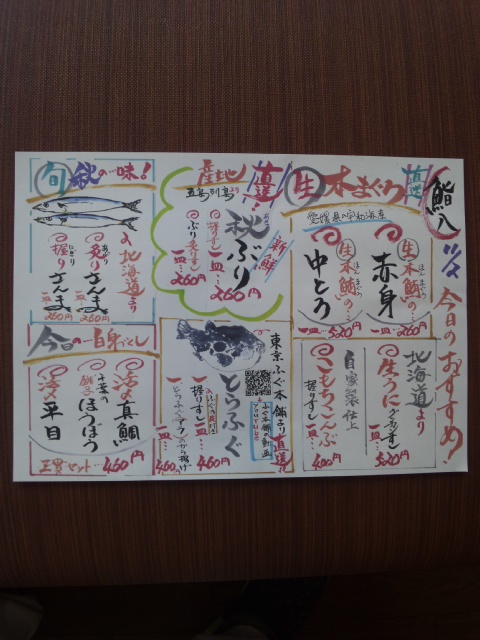 鮨八
今日のおすすめ!
生本まぐろ
直送
愛媛県の宇和海産
生本鮪の…
赤身
一皿…260円
生本鮪の…
中とろ
一皿…520円
北海道より
生うに
一皿…520円
自家製仕上
こもちこんぶ
握りすし
一皿…400円
産地直送!
五島列島より
新鮮
秋ぶり
握りすし
一皿…260円
ぶり炙りすし
一皿…260円
東京ふぐ本舗より直送!!
YOUTUBE
とらふぐ
握りすし
一皿…460円
一皿…460円
旬秋の一味!
北海道より
炙りさんま
一皿…260円
握りさんま
一皿…260円
今日の白身づくし
活〆真鯛
千葉の銚子ほうぼう
活〆平目
三貫セット…460円